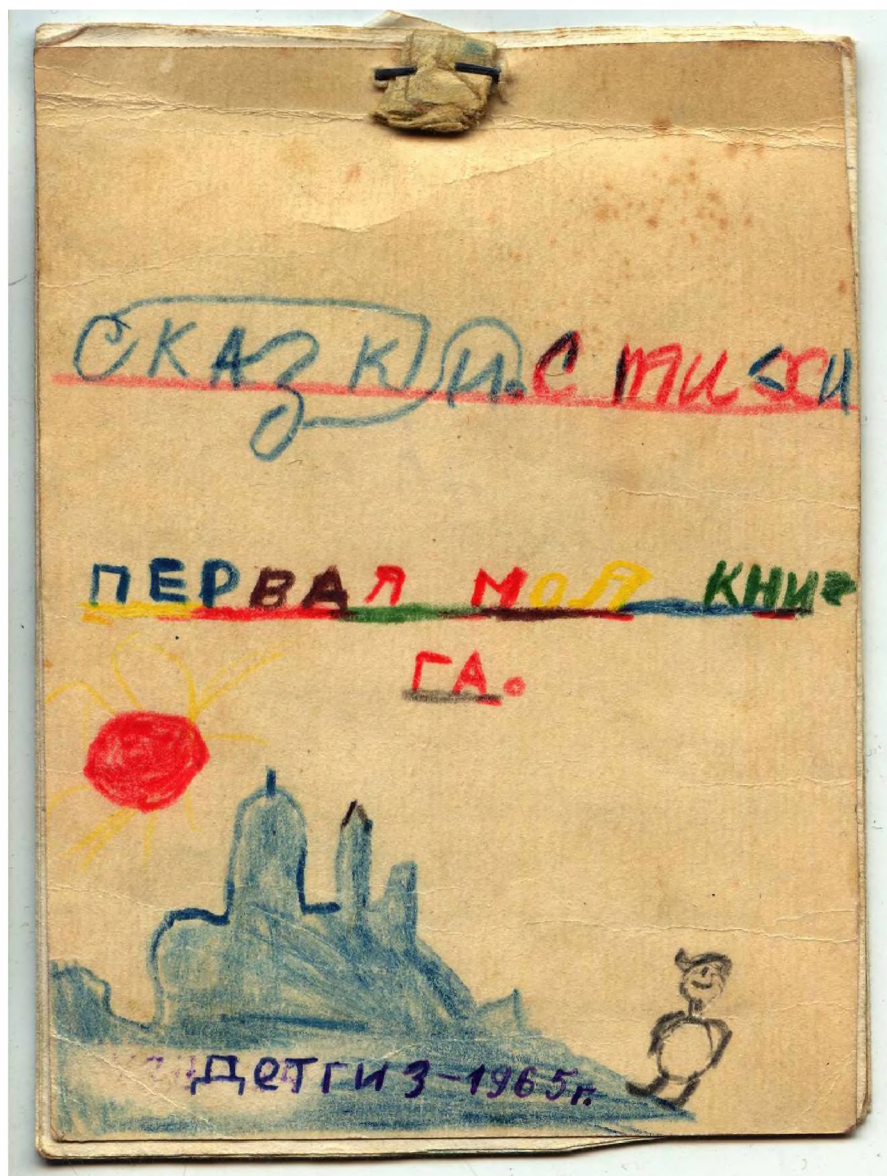 СКАЗКИ. СТИХИ
ПЕРВАЯ МОЯ КНИ
ГА.
ДЕТГИЗ-1965г.